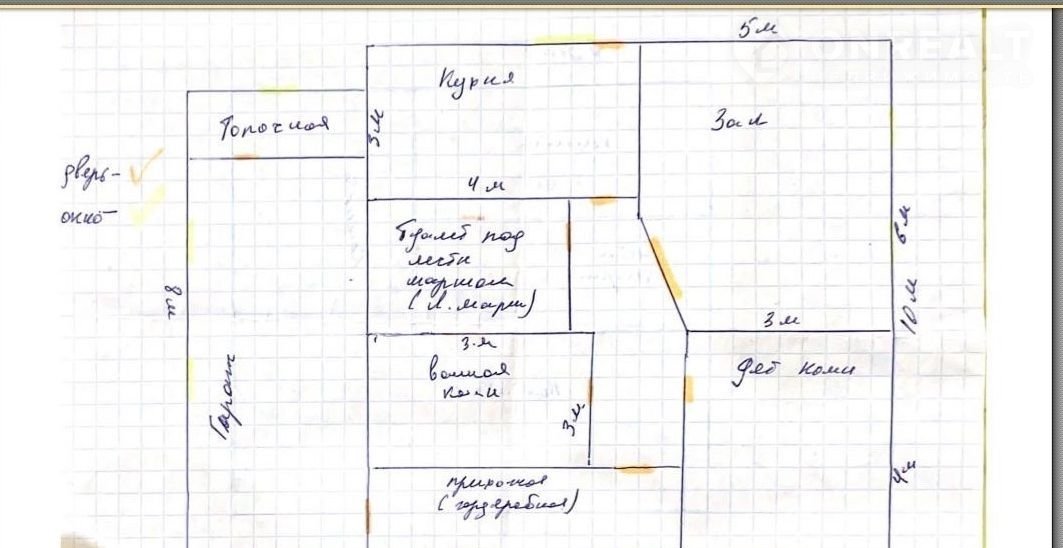 5 м
Кухня
Зал
3 м
Топочная
дверь-
окно-
4 м
Туалет под
лестн
маршом
(Л. марш)
6 м
10 м
8 м
3 м
3 м
ванная
комн
Дет комн
3 м
Гараж
4 м
прихожая
(гардеробная)